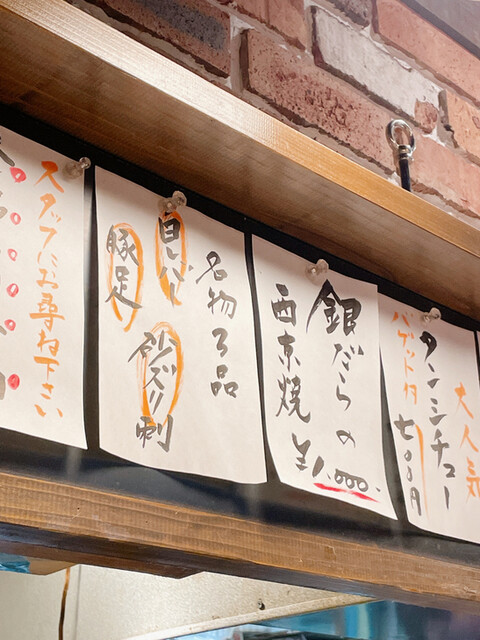 大人気
タンシチュー
バゲット付
七〇〇円
銀だらの
西京焼
¥1,000.
名物3品
白レバー
豚足
砂ズリ刺
スタッフにお尋ね下さい